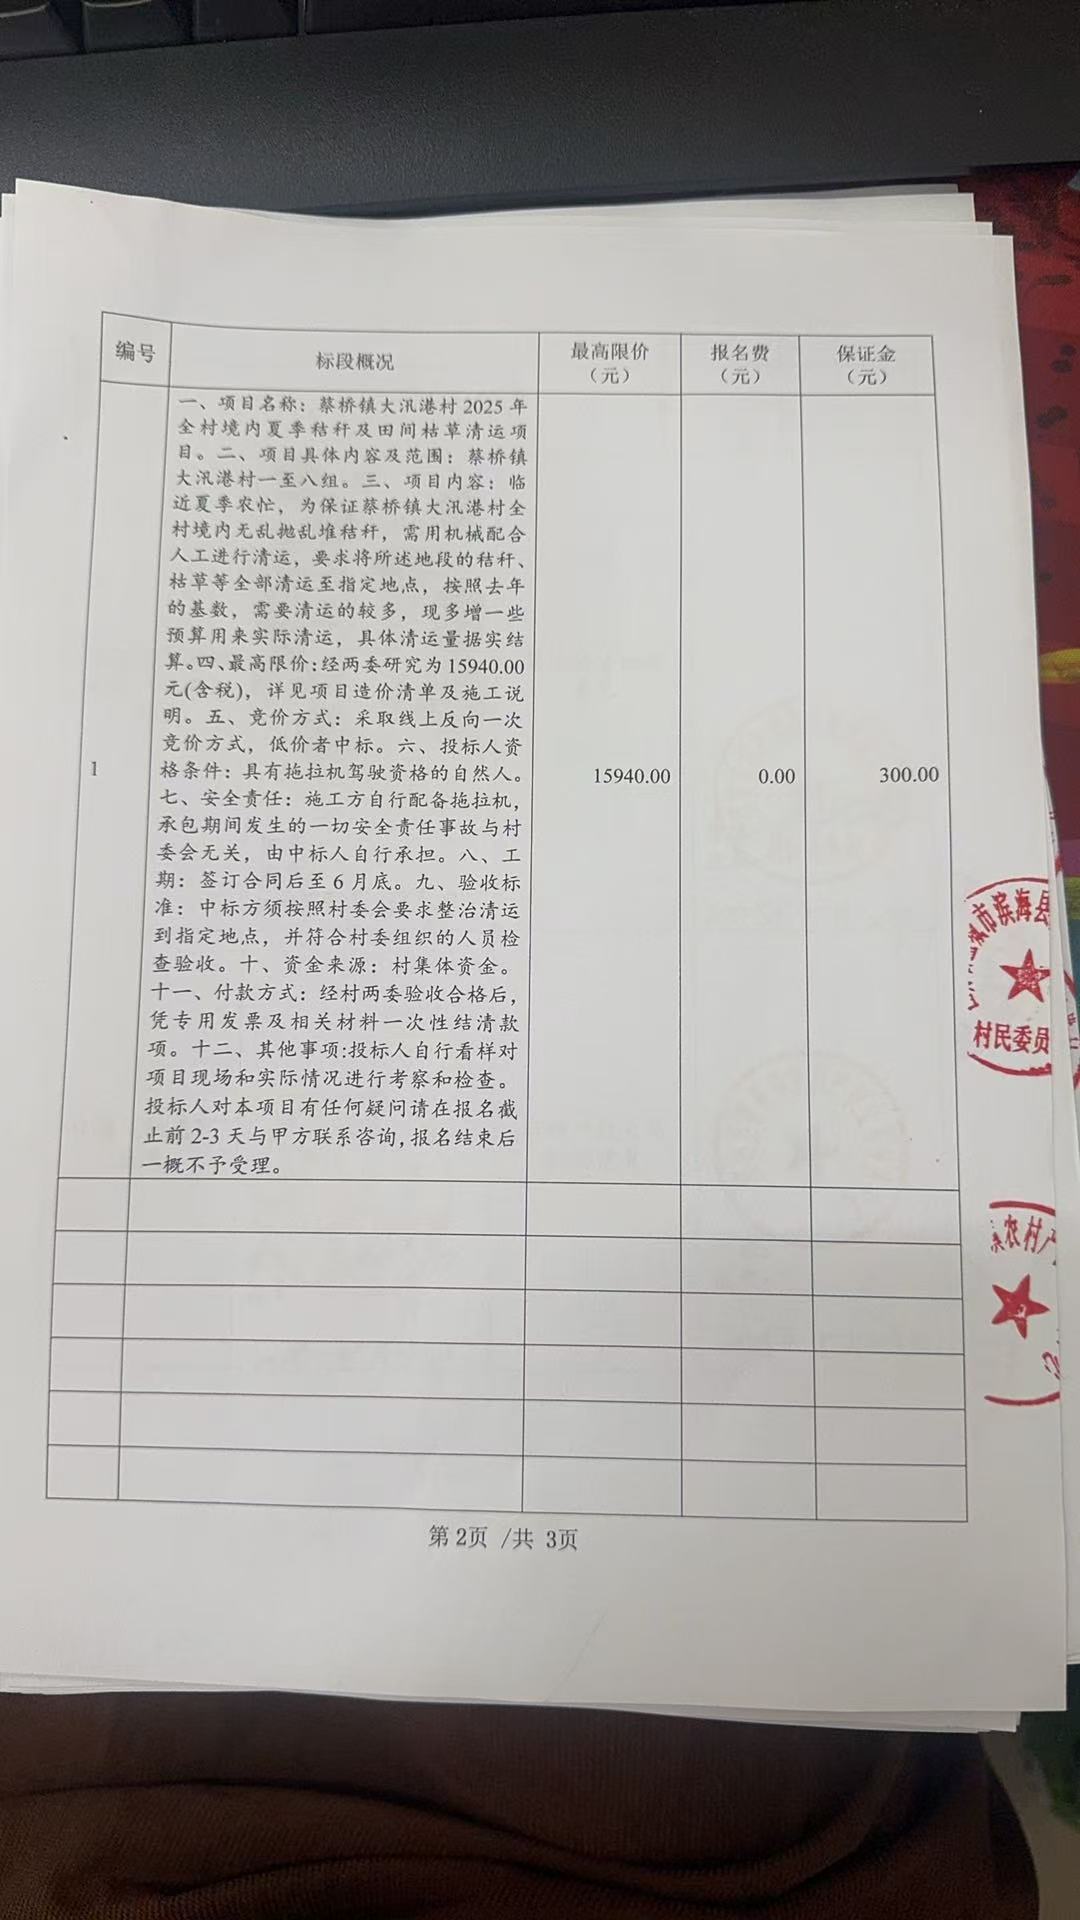 编号
标段概况
最高限价
（元）
报名费
（元）
保证金
（元）
1
一、项目名称：蔡桥镇大汛港村2025年
全村境内夏季秸秆及田间枯草清运项
目。二、项目具体内容及范围：蔡桥镇
大汛港村一至八组。三、项目内容：临
近夏季农忙，为保证蔡桥镇大汛港村全
村境内无乱抛乱堆秸秆，需用机械配合
人工进行清运，要求将所述地段的秸秆、
枯草等全部清运至指定地点，按照去年
的基数，需要清运的较多，现多增一些
预算用来实际清运，具体清运量据实结
算。四、最高限价:经两委研究为15940.00
元(含税)，详见项目造价清单及施工说
明。五、竞价方式：采取线上反向一次
竞价方式，低价者中标。六、投标人资
格条件：具有拖拉机驾驶资格的自然人。
七、安全责任：施工方自行配备拖拉机，
承包期间发生的一切安全责任事故与村
委会无关，由中标人自行承担。八、工
期：签订合同后至6月底。九、验收标
准：中标方须按照村委会要求整治清运
到指定地点，并符合村委组织的人员检
查验收。十、资金来源：村集体资金。
十一、付款方式：经村两委验收合格后，
凭专用发票及相关材料一次性结清款
项。十二、其他事项:投标人自行看样对
项目现场和实际情况进行考察和检查。
投标人对本项目有任何疑问请在报名截
止前2-3天与甲方联系咨询,报名结束后
一概不予受理。
15940.00
0.00
300.00
市滨海县
村民委员
农村产
第2页 /共 3页